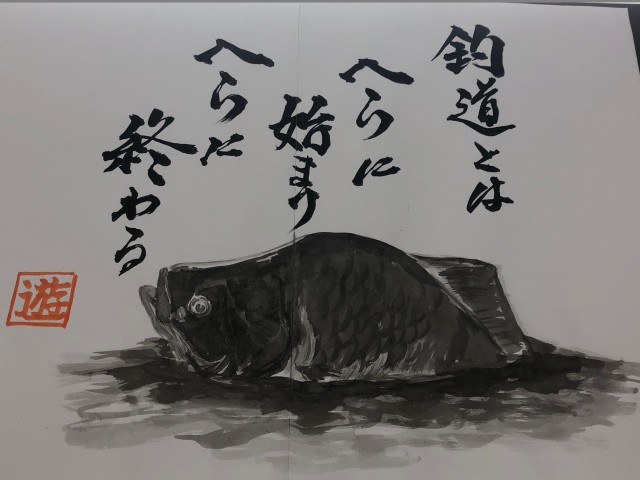 釣道とは
へらに
始まり
へらに
終わる
遊